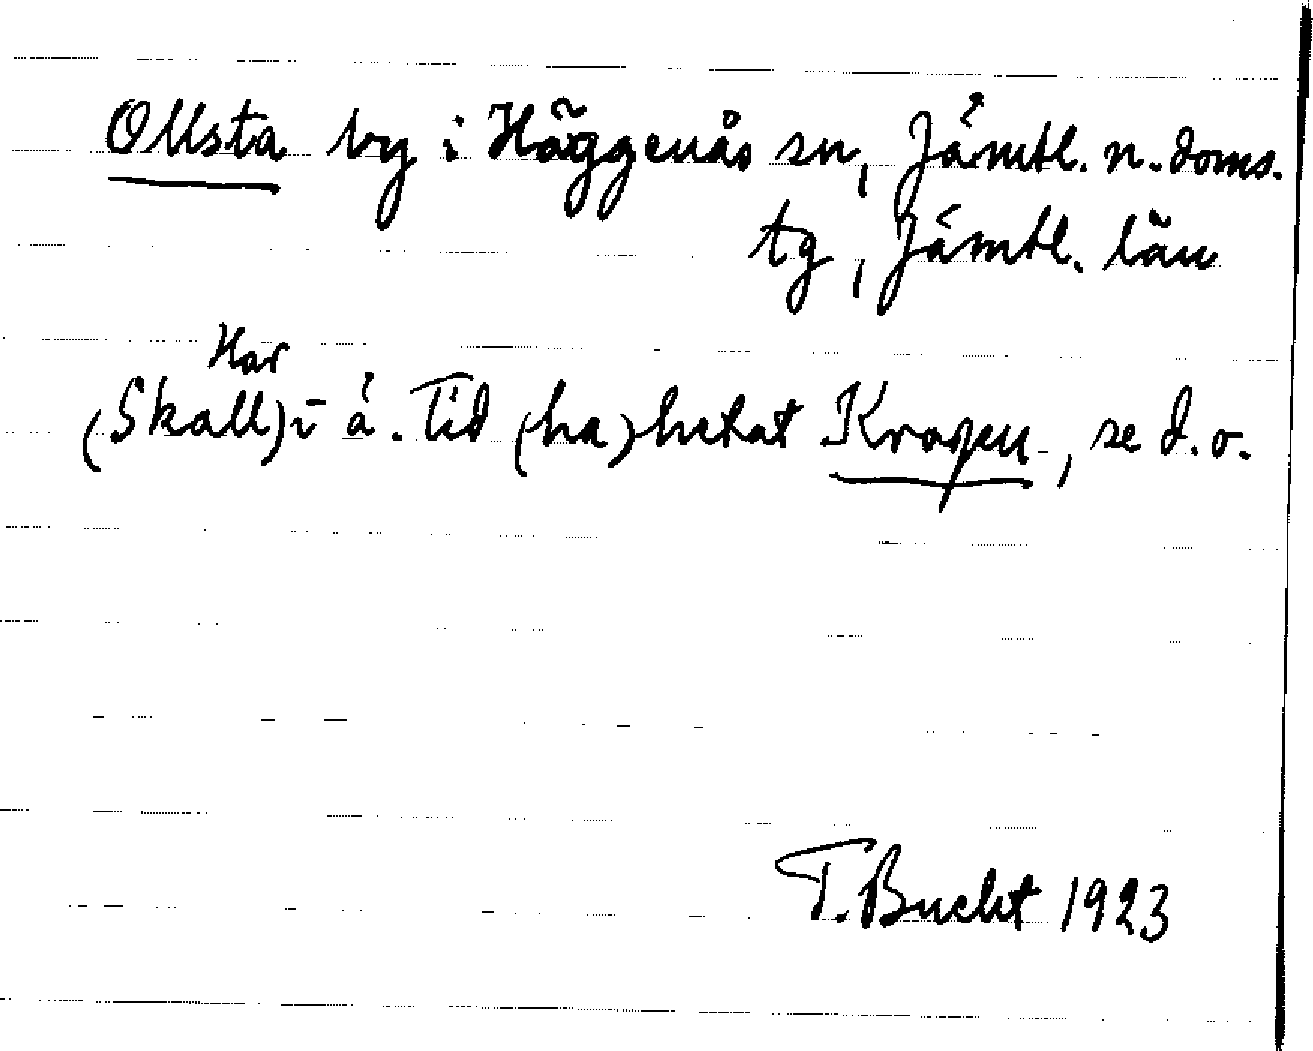 Ollsta by i Häggenås sn, Jämtl. n. doms.
tg, Jämtl. län
Har
(Skall) i ä. tid (ha) hetat Kropen, se d. o.
T. Bucht 1923